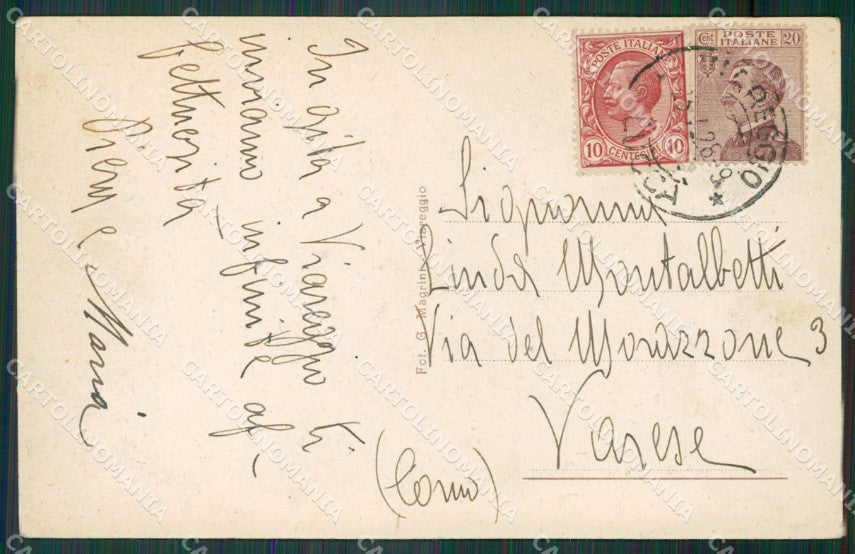 In gita a Viareggio ti
inviamo infinite af-
fettuosità
e Maria
Signorina
Linda Montalbetti
Via del Morazzone 3
Varese
(Como)
Fot. G. Magrini - Viareggio
POSTE ITALIANE
10 CENTESIMI 10
Cent. POSTE 20
ITALIANE
VIAREGGIO
CARTOLINOMANIA